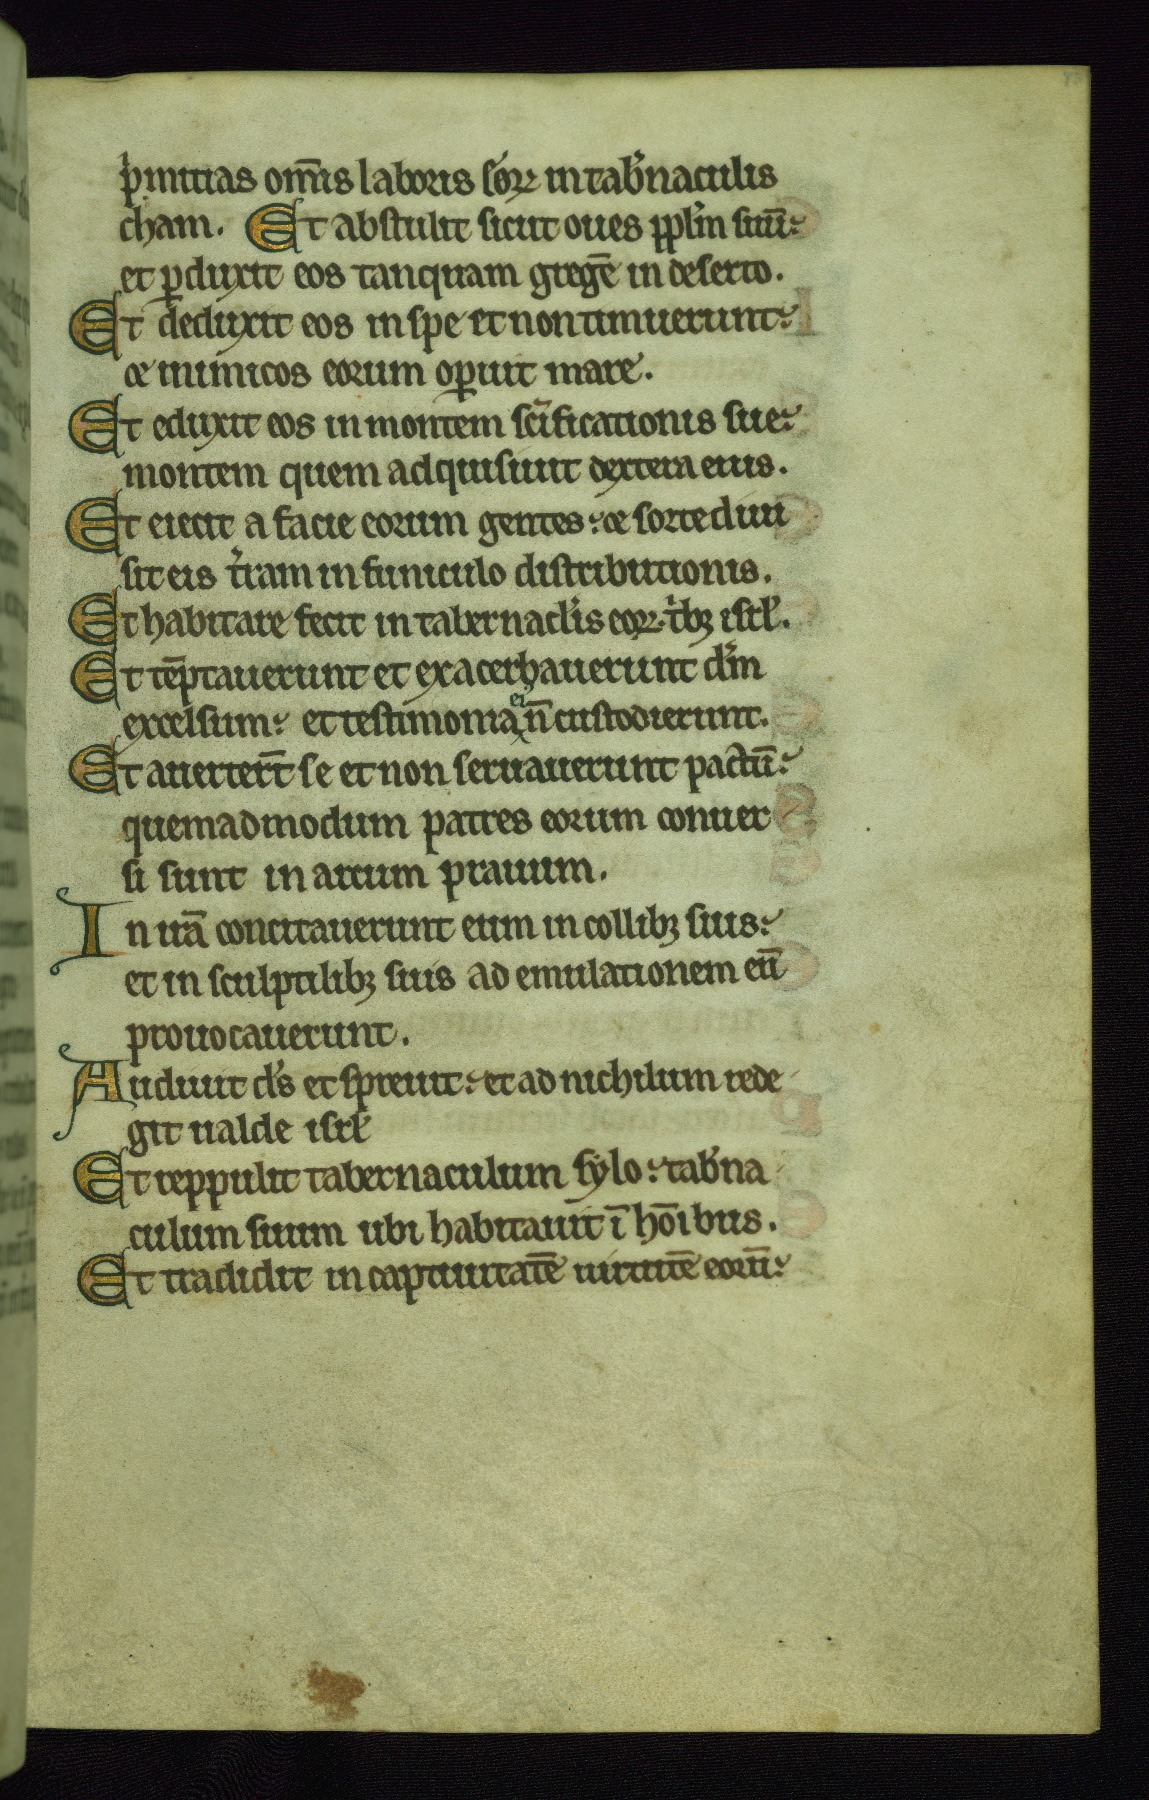 p̍mitias om̅is laboris eoꝝ in tab̉naculis
cham. Et abstulit sicut oues ppl̉m suu̅:
et ꝑduxit eos tanquam grege̅ in deserto.
Et deduxit eos in spe et non timuerunt:
⁊ inimicos eorum oꝑuit mare.
Et eduxit eos in montem sc̅ificationis sue:
montem quem adquisiuit dextera eius.
Et eiecit a facie eorum gentes: ⁊ sorte diui
sit eis t̉ram in funiculo distributionis.
Et habitare fecit in tabernacl̉is eoꝝ. t̉bꝫ isrl̉.
Et te̅ptauerunt et exacerbauerunt d̉m
excelsum: et testimonia ei n̅ custodierunt.
Et auerter̅t se et non seruauerunt pactu̅:
quemadmodum patres eorum conuer
si sunt in arcum prauum.
In ira̅ concitauerunt eum in collibꝫ suis:
et in sculptilibꝫ suis ad emulationem eu̅
prouocauerunt.
Audiuit d̉s et spreuit: et ad nichilum rede
git ualde isrl̉
Et reppulit tabernaculum sylo: tab̉na
culum suum ubi habitauit i̅ ho̅ibus.
Et tradidit in captiuitate̅ uirtute̅ eoru̅: